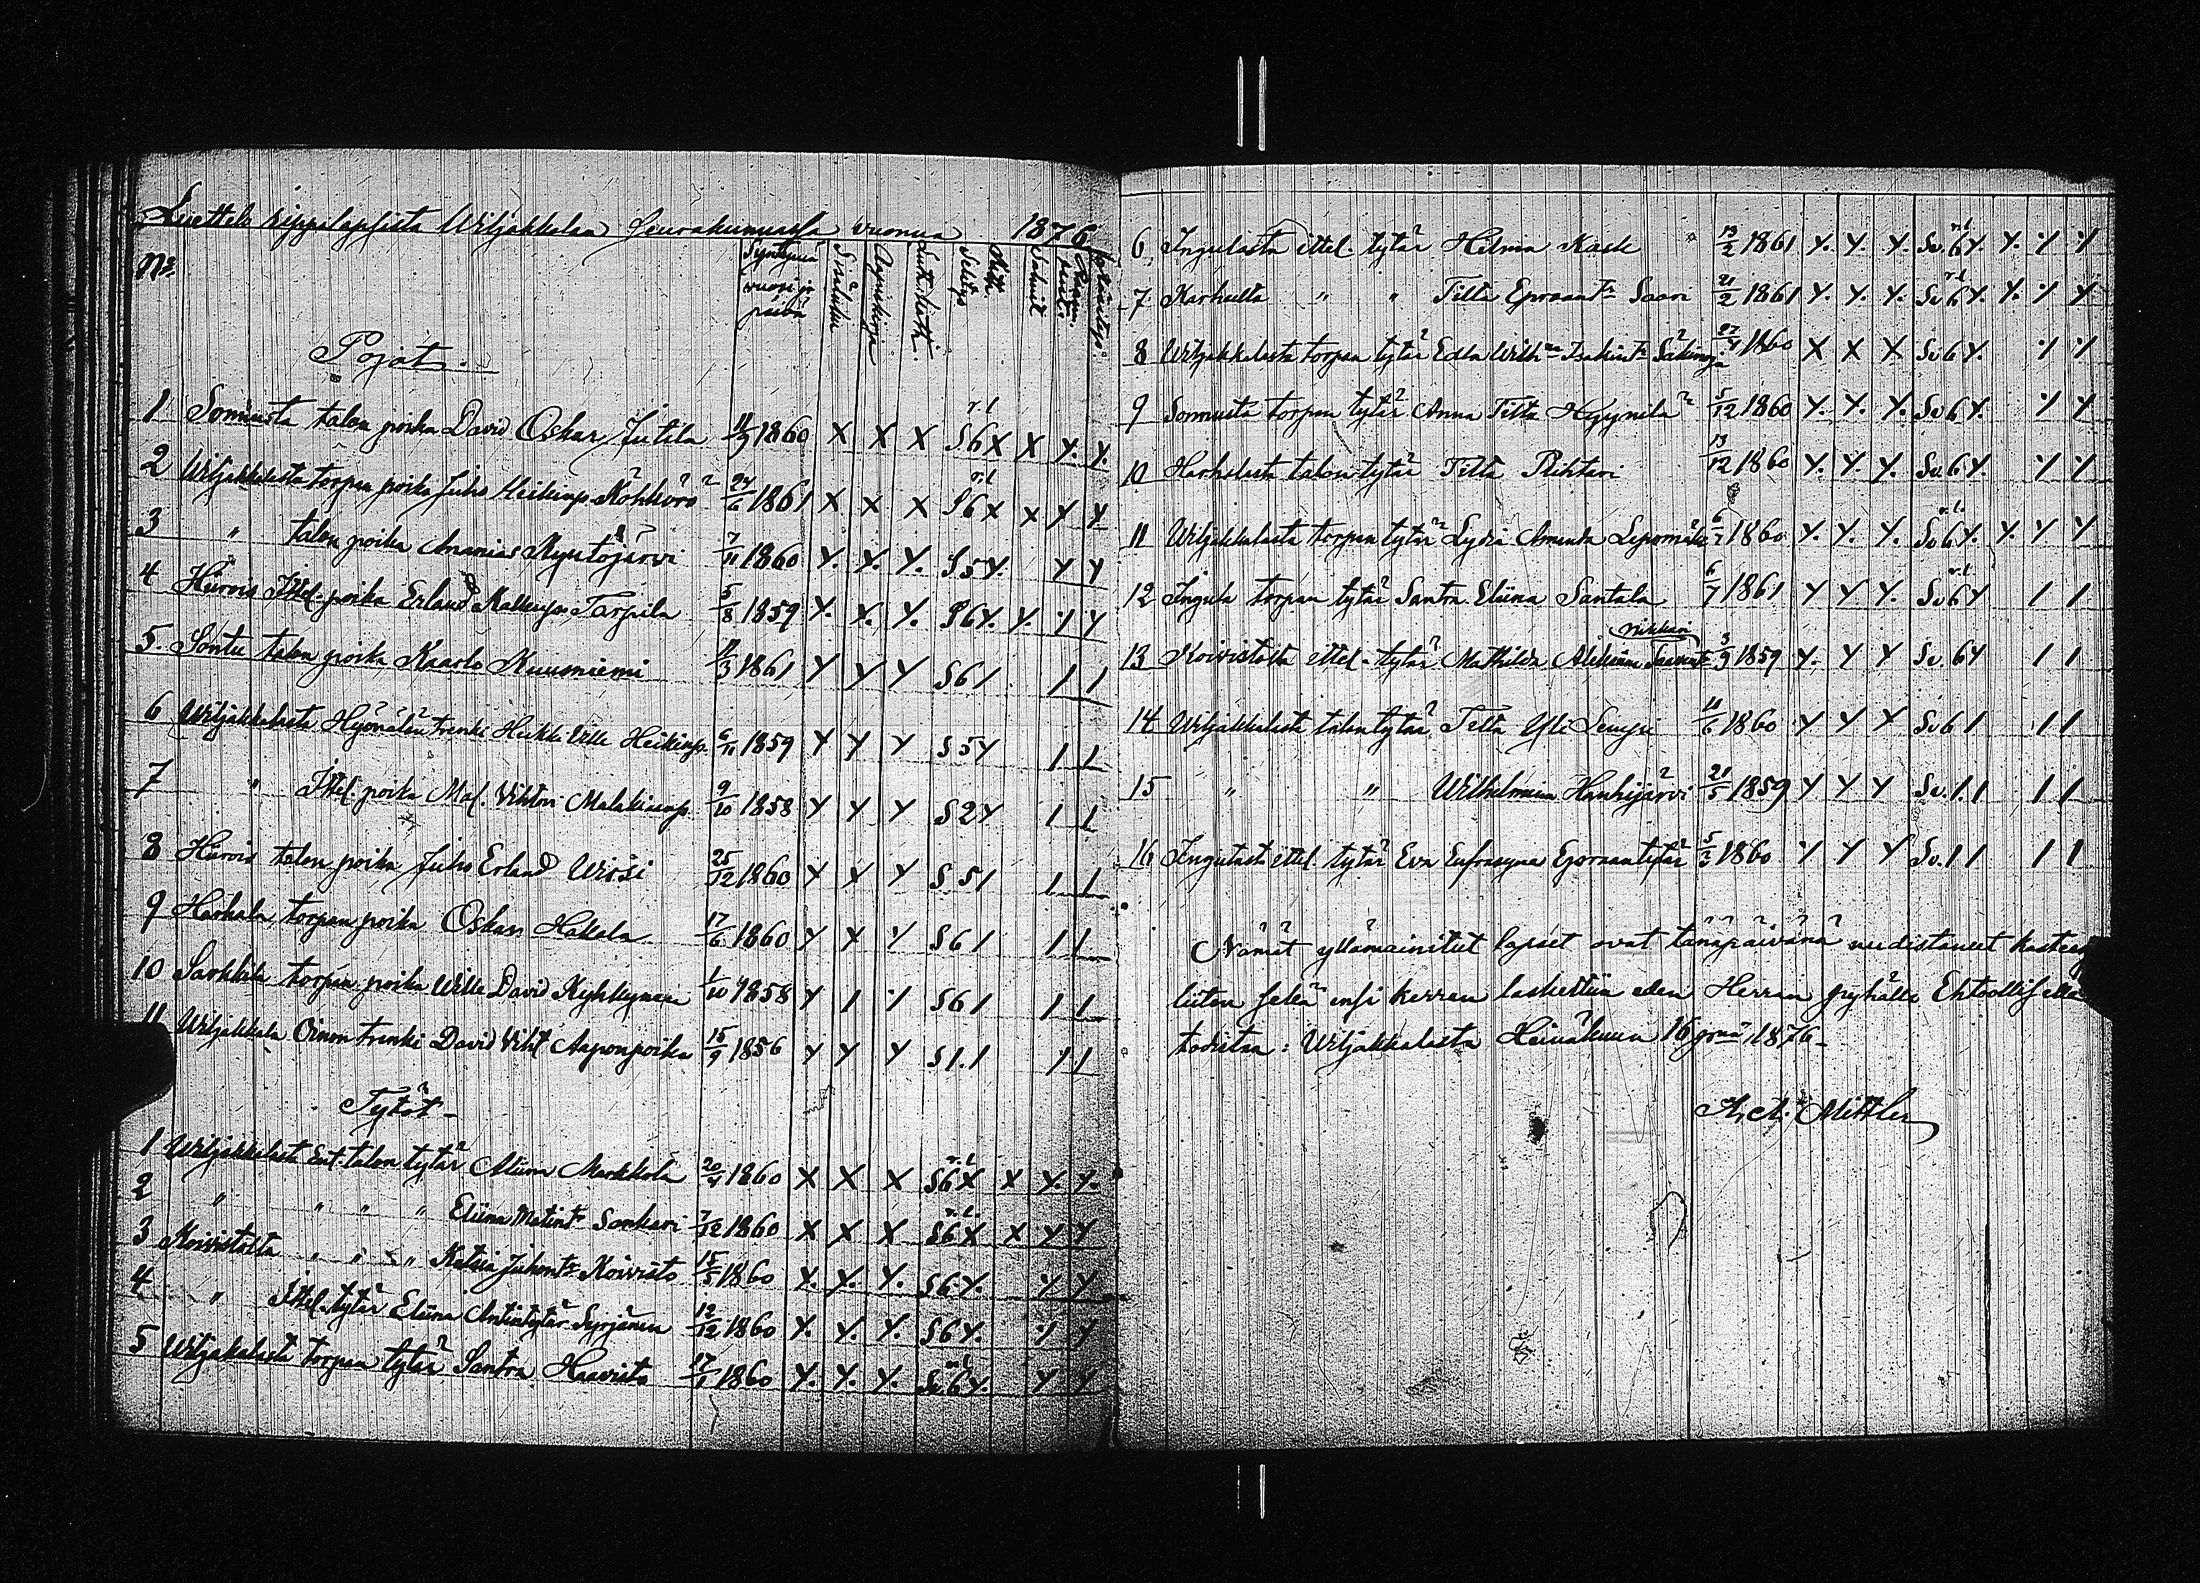 Luettelo rippilapsista Wiljakkalan Seurakunnassa vuonna 1876
No. Syntymä vuosi ja päivä Sisäluku Aapiskirja Luth. Kat. Selitys
Pojat.
1 Sontusta talon poika David Oskar Jutila 11/9 1860 X X X S6X r.l X Y. Y.
2 Wiljakkalasta torpan poika Juho Heikinp. Köhkörö 24/6 1861 X X X S6X r.l X Y Y
3 " talon poika Ananias Myntöjärwi 7/11 1860 Y. Y. Y. S5Y. Y Y
4 Hirvois Ittel. poika Erland Kallenpo. Tarpila 5/8 1859 Y. Y. Y. S6Y. Y. Y Y
5. Sontu talon poika Kaarlo Kuusniemi 11/3 1861 Y Y Y S61 1 1
6 Wiljakkalasta Hyönälän trenki Heikki Ville Heikinp. 6/11 1859 Y Y Y S5Y 1 1
7 " Ittel. poika Mal. Vihtori Malakianp. 9/10 1858 Y Y Y S2Y 1 1
8 Hirvois talon poika Juho Erland Wirsi 25/12 1860 Y Y Y S51 1 1
9 Harhala torpan poika Oskar Hakala 17/6 1860 Y Y Y S61 1 1
10 Sarkkila torpan poika Wille David Kyhkynen 1/10 1858 Y 1 1 S61 1 1
11 Wiljakkala Oinon trenki David Viht. Aaponpoika 15/9 1856 Y Y Y S1.1 1 1
Tytöt
1 Wiljakkalasta Ent. talon tytär Miina Markkola 20/4 1860 X X X S6X r.l X Y. Y.
2 " " " " Eliina Matint. Sonkari 7/12 1860 X X X S6X r.l. X Y Y
3 Koivistolta " " " Katria Juhont. Koivisto 15/5 1860 Y. Y. Y. S6.Y. Y Y
4 " Ittel. tytär Eliina Antintytär Syrjänen 12/12 1860 Y. Y. Y. S6Y. Y Y
5 Wiljakalasta torpan tytär Santra Haavisto 17/1 1860 Y. Y. Y. Sv.6Y. r.l Y Y
6 Ingulasta ittel. tytär Helmia Kaski 13/2 1861 Y. Y. Y. Sv.6Y. r.l Y. 1 1
7 Karhulta " " Tilta Eproant. Saari 21/2 1861 Y. Y. Y. Sv6Y. r.l Y. 1 Y
8 Wiljakkalasta torpan tytär Edla Wilh:na Isakint. Säkinoja 27/4 1860 X X X Sv6Y. 1 1
9 Sonnusta torpan tytär Anna Tilta Hyynilä 5/12 1860 Y. Y. Y. Sv6Y. 1 Y
10 Harhalasta talon tytär Tilta Riihtari 13/12 1860 Y. Y. Y. Sv.6.Y. 1 Y
11 Wiljakkalasta torpan tytär Lydia Amanda Lepomäki 6/7 1860 Y. Y. Y. Sv6Y. r.l. Y. Y Y
12 Ingula torpan tytär Santra Eliina Santala 6/7 1861 Y Y Y. Sv6Y r.l 1 1
nikkari
13 Koivistolta ittel. tytär Mathilda Aleksina 3/9 1859 Y. Y Y Sv.6Y 1 1
14 Wiljakkalasta talon tytär Tilta Yli Lempi 11/6 1860 Y Y Y Sv61 1 1
15 " " Wilhelmina Hanhijärvi 21/5 1859 Y Y Y Sv.1.1 1 1
16 Ingulasta ittel. tytär Eva Eufrosyna Eproaantytär 5/3 1860 Y Y Y Sv.11 1 1
Nämät yllämainitut lapset ovat tänäpäivänä uudistaneet kasteen
liiton sekä ensi kerran laskettiin eden Herran pyhälle Ehtoollisella
todistaa: Wiljakkalasta Heinäkuun 16 p:nä 1876
A. A. Mittler